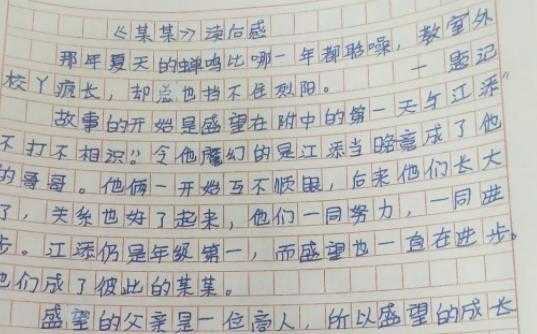 《某某》读后感
那年夏天的蝉鸣比哪一年都聒噪,教室外
枝丫疯长,却总也挡不住烈阳。 —题记
故事的开始是盛望在附中的第一天与江添“
不打不相识”。令他魔幻的是江添当晚竟成了他
的哥哥。他俩一开始互不顺眼,后来他们长大
了,关系也好了起来,他们一同努力,一同进
步。江添仍是年级第一,而盛望也一直在进步。
他们成了彼此的某某。
盛望的父亲是一位商人,所以盛望的成长